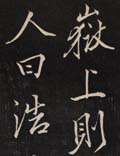 嶽上則
人曰浩